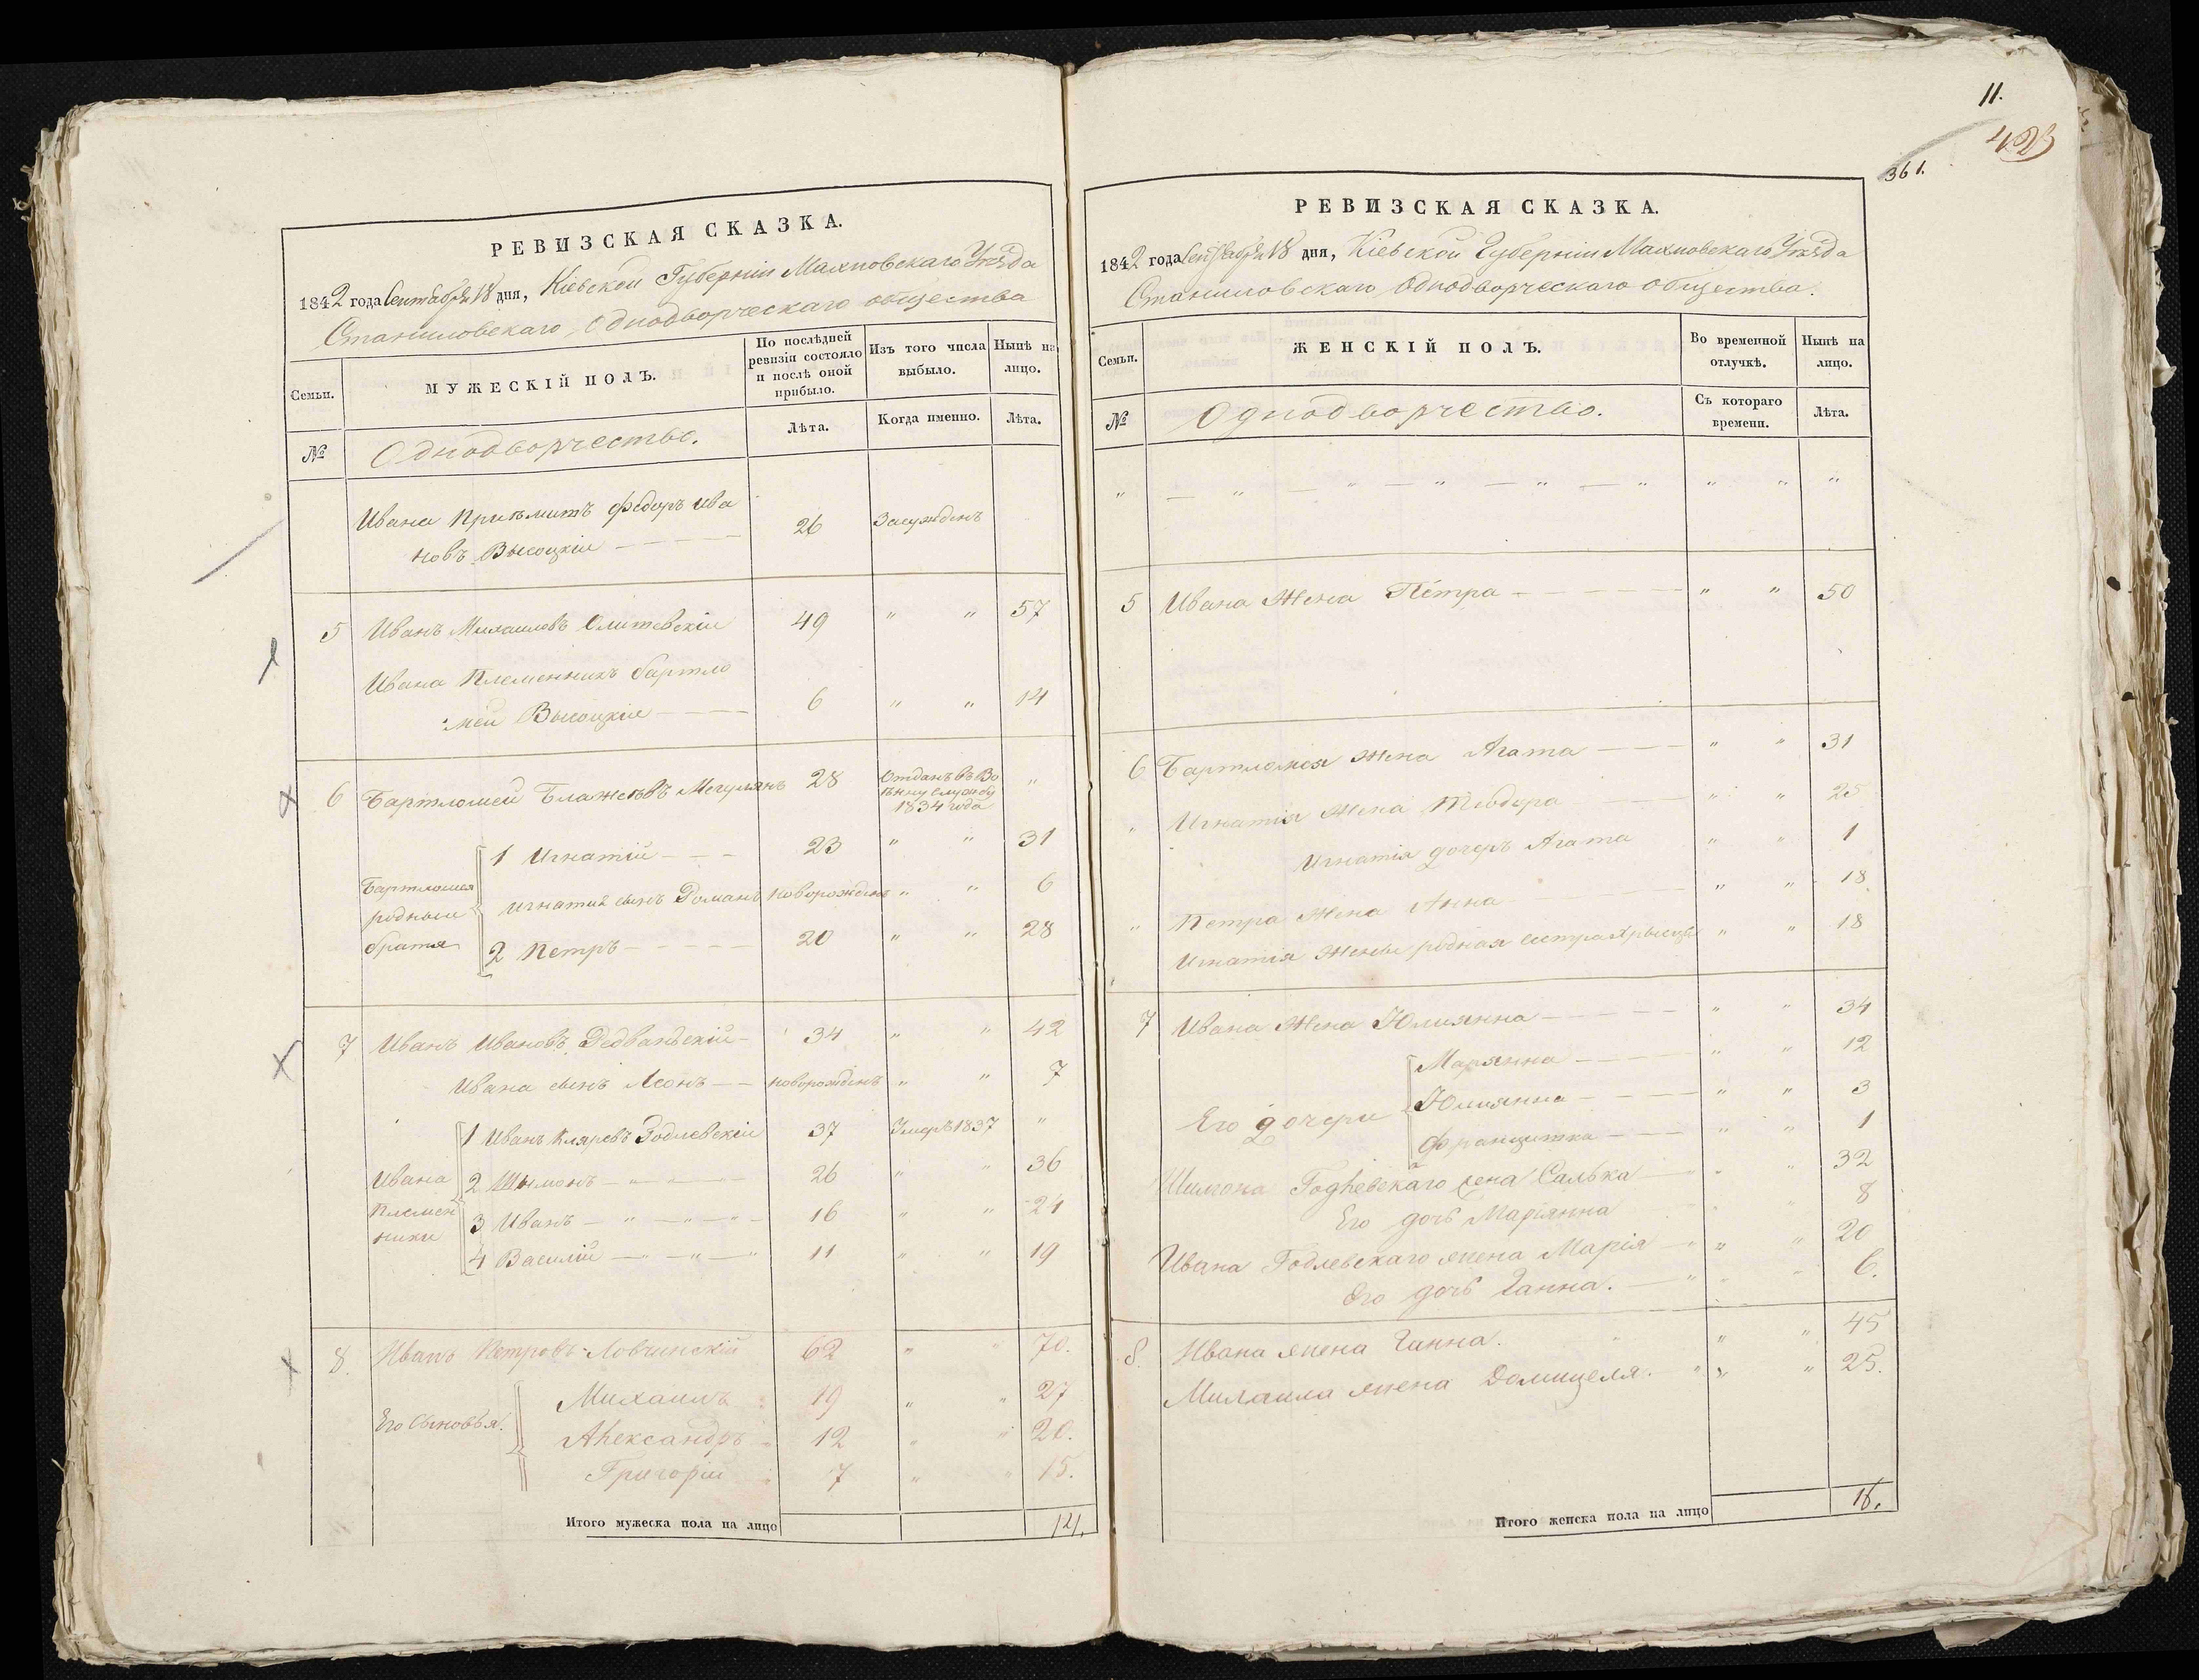 РЕВИЗСКАЯ СКАЗКА.
1842 года Сентября 18 дня, Кіевской Губерніи Махновскаго Уѣзда
Станиловскаго Однодворческаго общества
Семьи.
МУЖЕСКІЙ ПОЛЪ.
По послѣдней
ревизіи состояло
и послѣ оной
прибыло.
Изъ того числа
выбыло.
Нынѣ на
лицо.
№
Однодворчество.
Лѣта.
Когда именно.
Лѣта.
Ивана Приъмитъ Федоръ Ива
новъ Высоцкіи 26 Засужденъ
5 Иванъ Михаиловъ 49 " " 57
Ивана Племенникъ бартло
мей Высоцкіи 6 " " 14
6 Бартломей Блажеѣвъ 28 Отданъ въ Во
ѣнну службу
1834 года "
Бартломея
родныи
братья
1 Игнатій 23 " " 31
Игнатия сынъ Романъ новорожденъ " " 6
2 Петръ 20 " " 28
7 Иванъ Ивановъ 34 " " 42
Ивана сынъ Леонъ новорожденъ " " 7
Ивана
Племен
ники
1 Иванъ 37 Умеръ 1837 "
2 Шымонъ 26 " " 36
3 Иванъ 16 " " 24
4 Василій 11 " " 19
8. Иванъ Петровъ Ловчинскій 62 " " 70.
Его Сыновья.
Михаилъ 19 " " 27
Александръ 12 " " 20.
Григорій 7 " " 15.
Итого мужеска пола на лицо 14.
11.
423
361.
РЕВИЗСКАЯ СКАЗКА.
1842 года Сентября 18 дня, Кіевской Губерніи Махновскаго Уѣзда
Станиловскаго Однодворческаго общества.
Семьи.
ЖЕНСКІЙ ПОЛЪ.
Во временной
отлучкѣ.
Нынѣ на
лицо.
№
Однодворчество.
Съ котораго
времени.
Лѣта.
" — " — " — " — " — " " " "
5 Ивана Жена Петра " " 50
6 Бартломея жена Агата " " 31
" Игнатія Жена Теодора " " 25
Игнатія дочеръ Агата " " 1
" Петра Жена Анна " " 18
Игнатія Жены родная сестра " " 18
7 Ивана Жена Юлиянна " " 34
Его дочери
Марянна " " 12
Юлиянна " " 3
Францишка " " 1
Шимона Годлевскаго жена Салька " " 32
Его дочь Маріянна 8
Ивана Годлевскаго жена Марія " " 20
Его дочь Ганна. " " 6.
8. Ивана жена Ганна. " " 45
Михаила жена Домицеля. " " 25.
Итого женска пола на лицо 16.